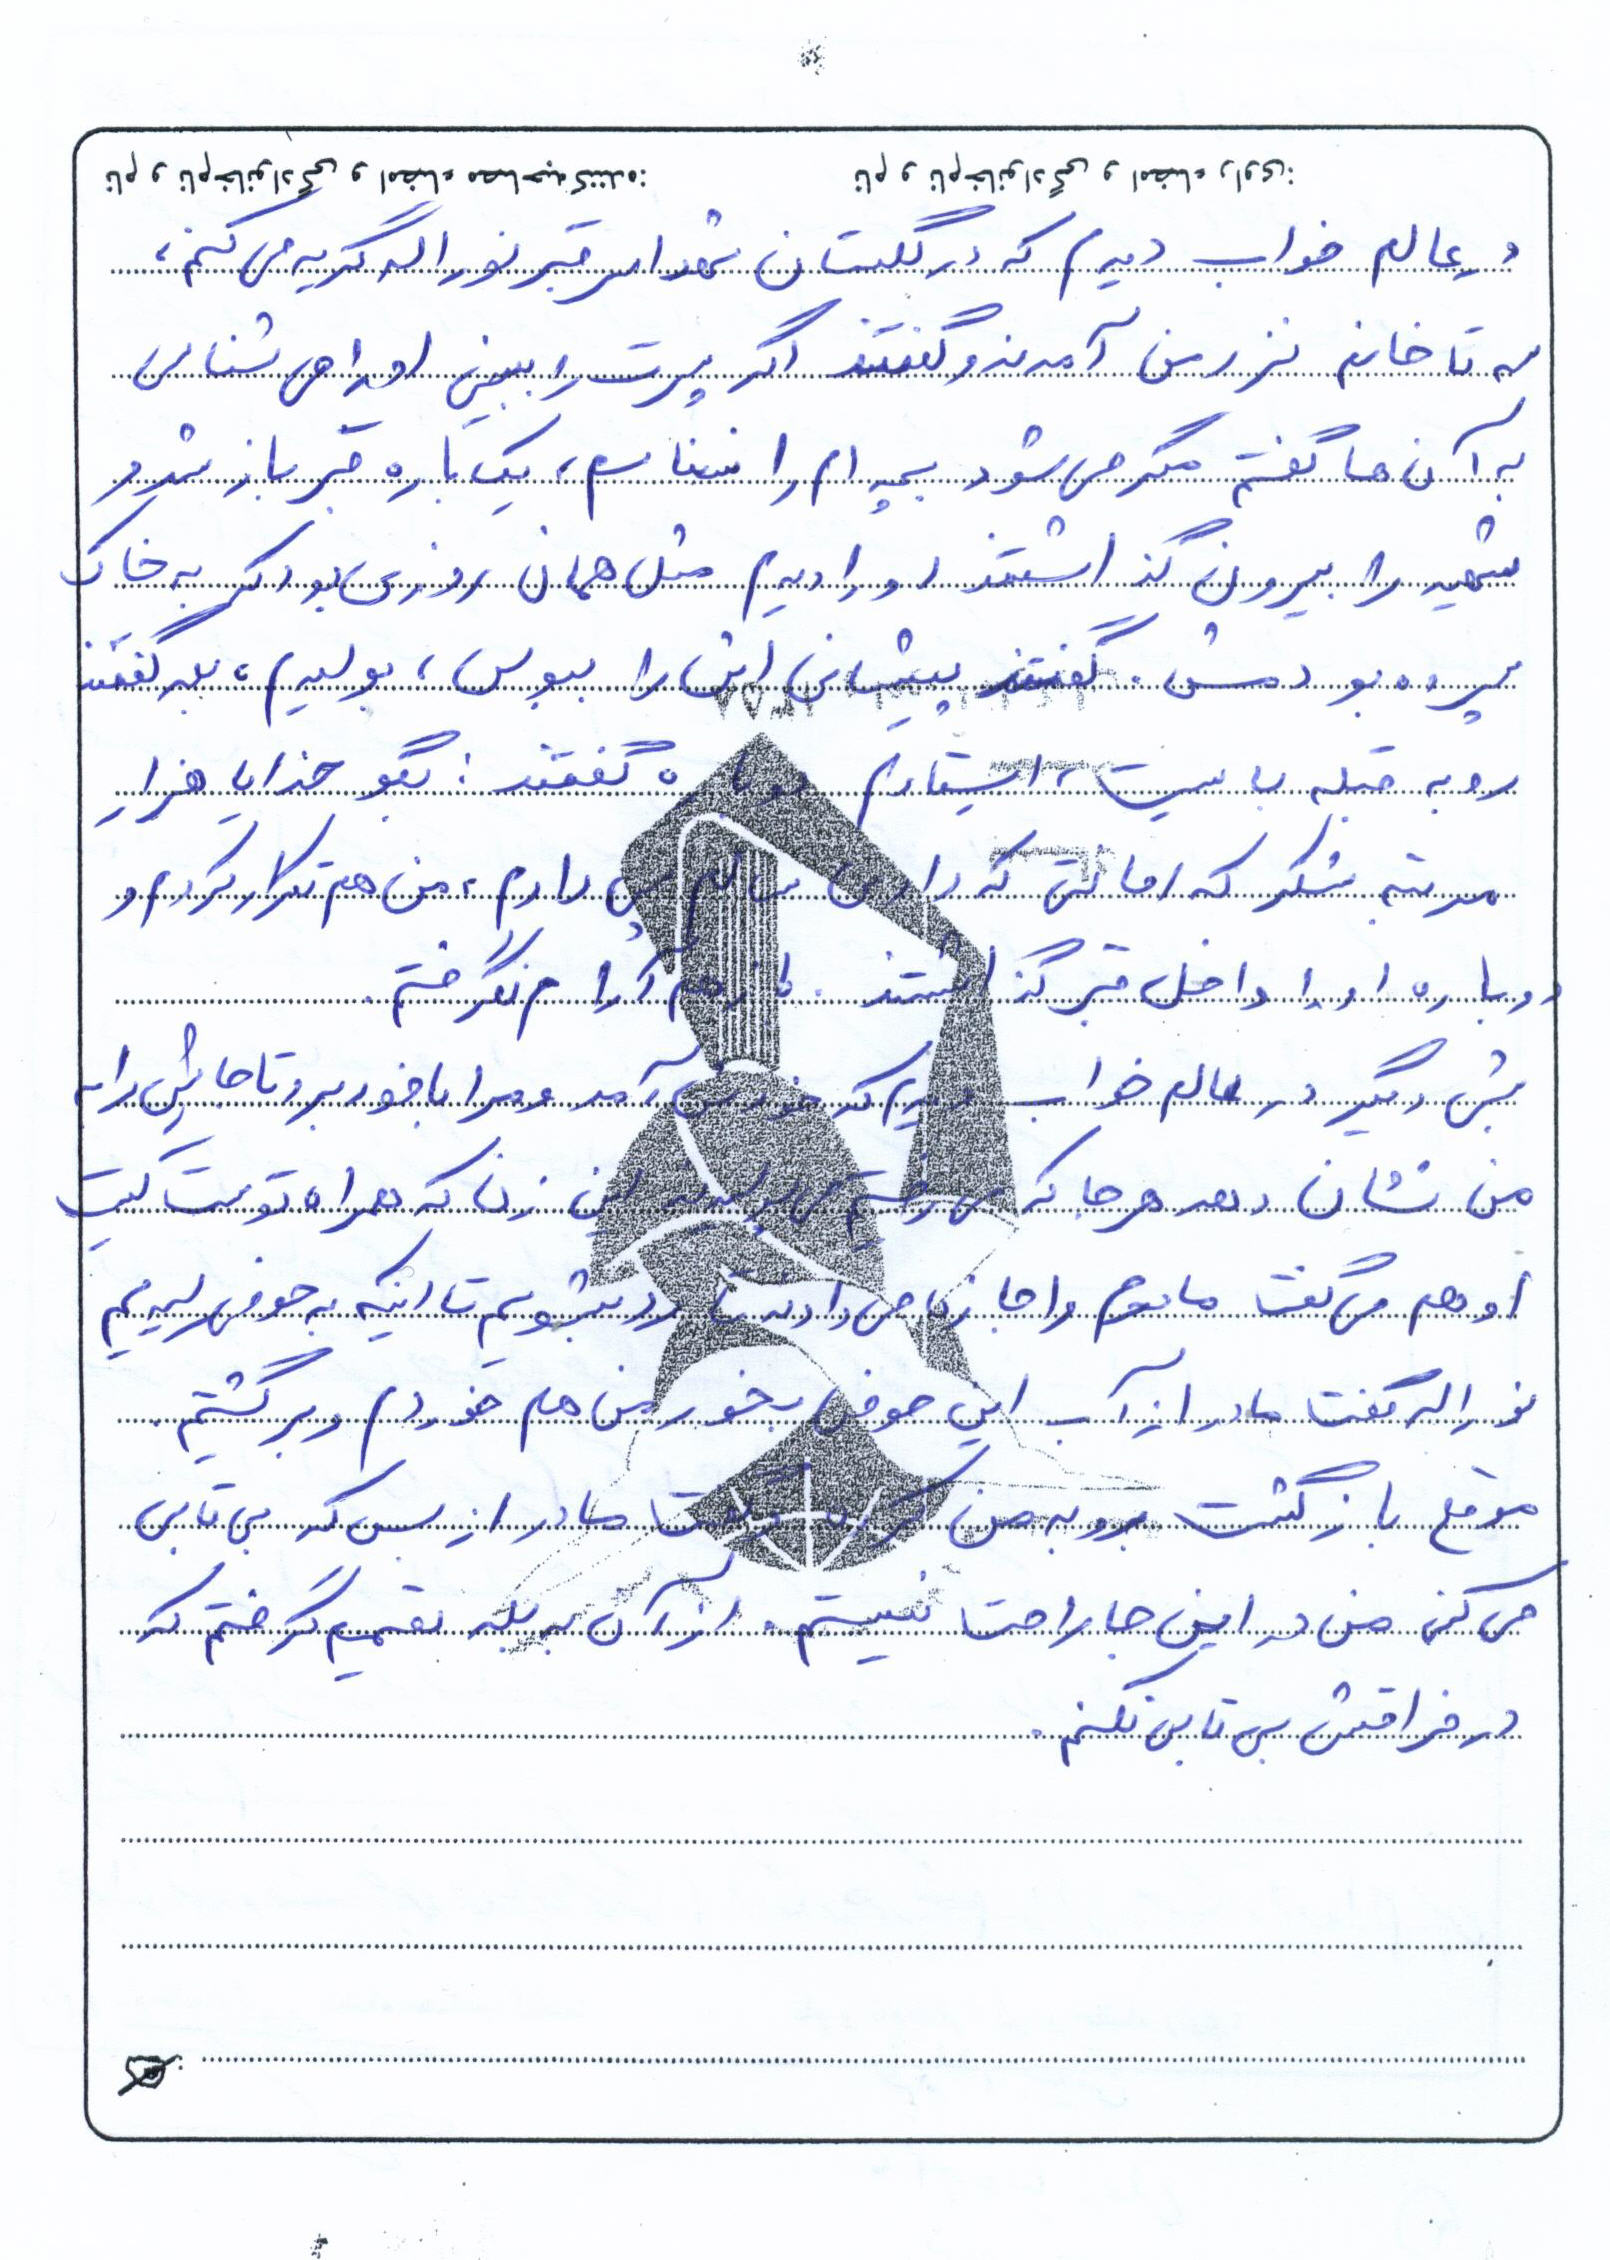 نام و نام خانوادگی و امضاء راوی: نام و نام خانوادگی و امضاء مصاحبه کننده:
در عالم خواب دیدم که در گلستان شهدا سر قبر نوراله گریه می کنم،
سه تا خانم نزد من آمدند و گفتند اگر پسرت را ببینی او را می شناسی
به آن ها گفتم مگر می شود بچه ام را نشناسم، یک باره قبر باز شد و
شهید را بیرون گذاشتند او را دیدم مثل همان روزی بود که به خاک
سپرده بودمش. گفتند پیشانی اش را ببوس، بوسیدم، بعد گفتند
رو به قبله بایست، ایستادم دوباره گفتند: بگو خدایا هزار
مرتبه شکر که امانتی که دادی سالم پس دادم، من هم تکرار کردم و
دوباره او را داخل قبر گذاشتند. باز هم آرام نگرفتم.
شب دیگر در عالم خواب دیدم که خودش آمد و مرا با خود برد تا جایش را به
من نشان دهد هر جا که می رفتیم می پرسیدند این زن که همراه توست کیست
او هم می گفت مادرم و اجازه می دادند تا رد بشویم تا اینکه به حوض رسیدیم
نوراله گفت مادر از آب این حوض بخور من هم خوردم و برگشتیم.
موقع بازگشت رو به من کرد و گفت مادر از بس که بی تابی
می کنی من در این جا راحت نیستم. از آن به بعد تصمیم گرفتم که
در فراقش بی تابی نکنم.